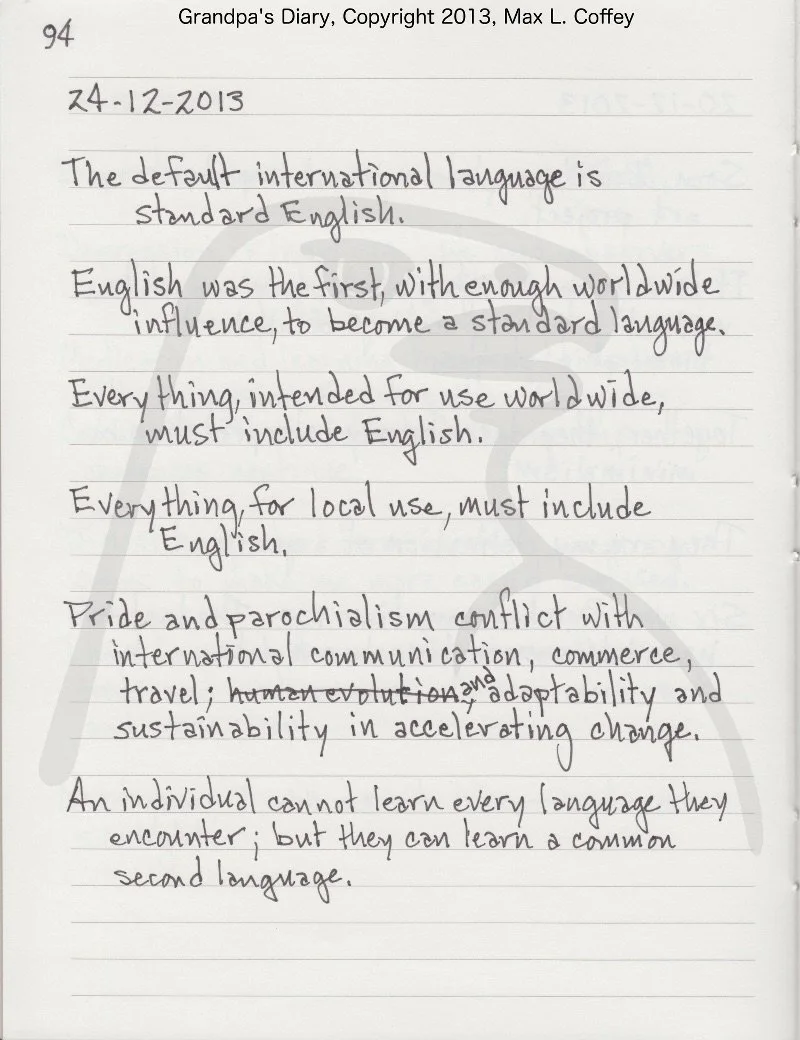 Grandpa's Diary, Copyright 2013, Max L. Coffey
94
24-12-2013
The default international language is
standard English.
English was the first, with enough worldwide
influence, to become a standard language.
Everything, intended for use worldwide,
must include English.
Everything, for local use, must include
English.
Pride and parochialism conflict with
international communication, commerce,
travel; human evolution, and adaptability and
sustainability in accelerating change.
An individual cannot learn every language they
encounter; but they can learn a common
second language.